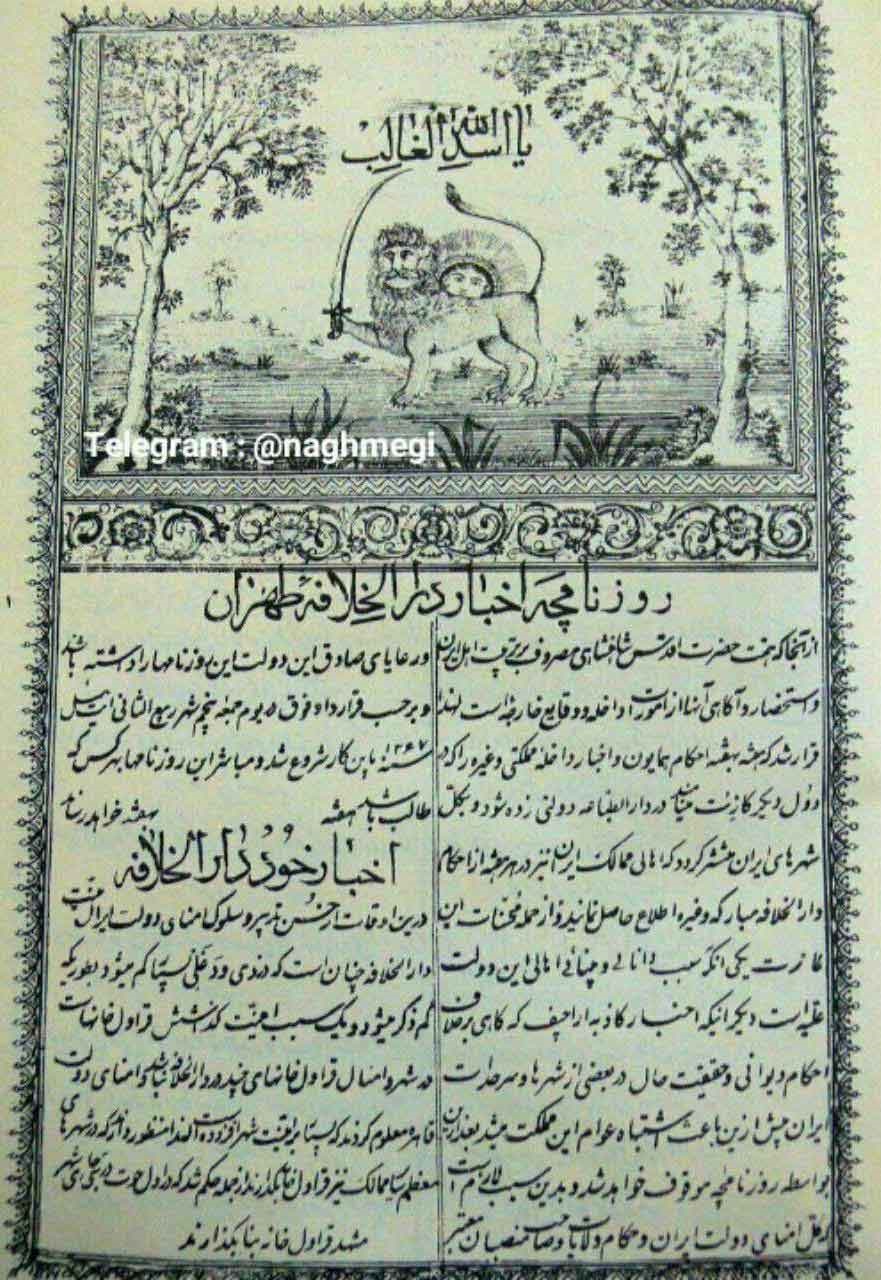 یا اسد الله الغالب
Telegram : @naghmegi
روزنامچه اخبار دار الخلافه طهران
از آنجا که همت حضرت اقدس شاهنشاهی مصروف بر تربیت اهل ایران
و استحضار و آگاهی آنها از امورات داخله و وقایع خارجه است لهذا
قرار شد که هفته بهفته احکام همایون و اخبار داخله مملکتی و غیره را که در
دول دیگر کازت مینامند در دار الطباعه دولتی زده شود و بکل
شهرهای ایران منتشر گردد که اهالی ممالک ایران نیز در هر هفته از احکام
دار الخلافه مبارکه و غیره اطلاع حاصل نمایند و از جمله محسنات این
کازت یکی آنکه سبب دانائی و بینائی اهالی این دولت
علیه است دیگر اینکه اخبار کاذبه اراجیف که گاهی برخلاف
احکام دیوانی و حقیقت حال در بعضی از شهرها و سرحدات
ایران پیش ازین باعث اشتباه عوام این مملکت میشد بعد ازین
بواسطه روزنامچه موقوف خواهد شد و بدین سبب لازم است
که کل امنای دولت ایران و حکام ولایات و صاحب منصبان معتبر
و رعایای صادق این دولت این روزنامها را داشته باشند
و برحسب قرارداد فوق ۵ یوم جمعه پنجم شهر ربیع الثانی
سنه ۱۲۶۷ باین کار شروع شد و مباشر این روزنامها بهر کس که
طالب باشد هفته بهفته خواهد رساند
اخبار خود دار الخلافه
درین اوقات از حسن تدبیر و سلوک امنای دولت ایران امنیت
دار الخلافه چنان است که دزدی و دغلی نسبتا کم میشود بطوریکه
کم ذکر میشود و یک سبب امنیت گذاشتن قراول خانهاست
در شهر و امثال قراول خانهای چند در دار الخلافه و امنای دولت
قاهره معلوم کردند که بسیار بر امنیت شهر افزوده است لهذا منظور دارند که در شهرهای
معظم سایر ممالک نیز قراول خانه بگذارند از جمله حکم شد که در اول حوت در شهر
مشهد قراول خانه بنا بگذارند
۱